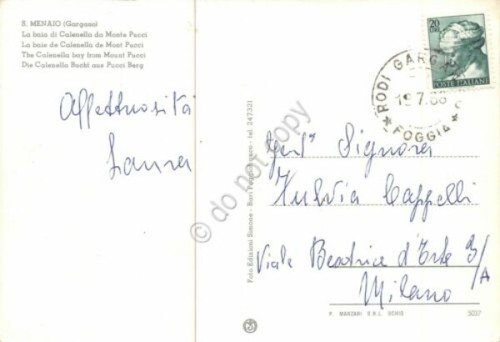 S. MENAIO (Gargano)
La baia di Calenella da Monte Pucci
La baie de Calenella de Mont Pucci
The Calenella bay from Mount Pucci
Die Calenella Bucht aus Pucci Berg
Affettuosità
Laura
20
POSTE ITALIANE
RODI GARG
19.7.66
FOGGIA
Gent. Signora
Fulvia Cappelli
Viale Beatrice d'Este 3/A
Milano
Foto Edizioni Simone - tel. 247321
P. MANZARI S.R.L. SCHIO
5037
© do not copy